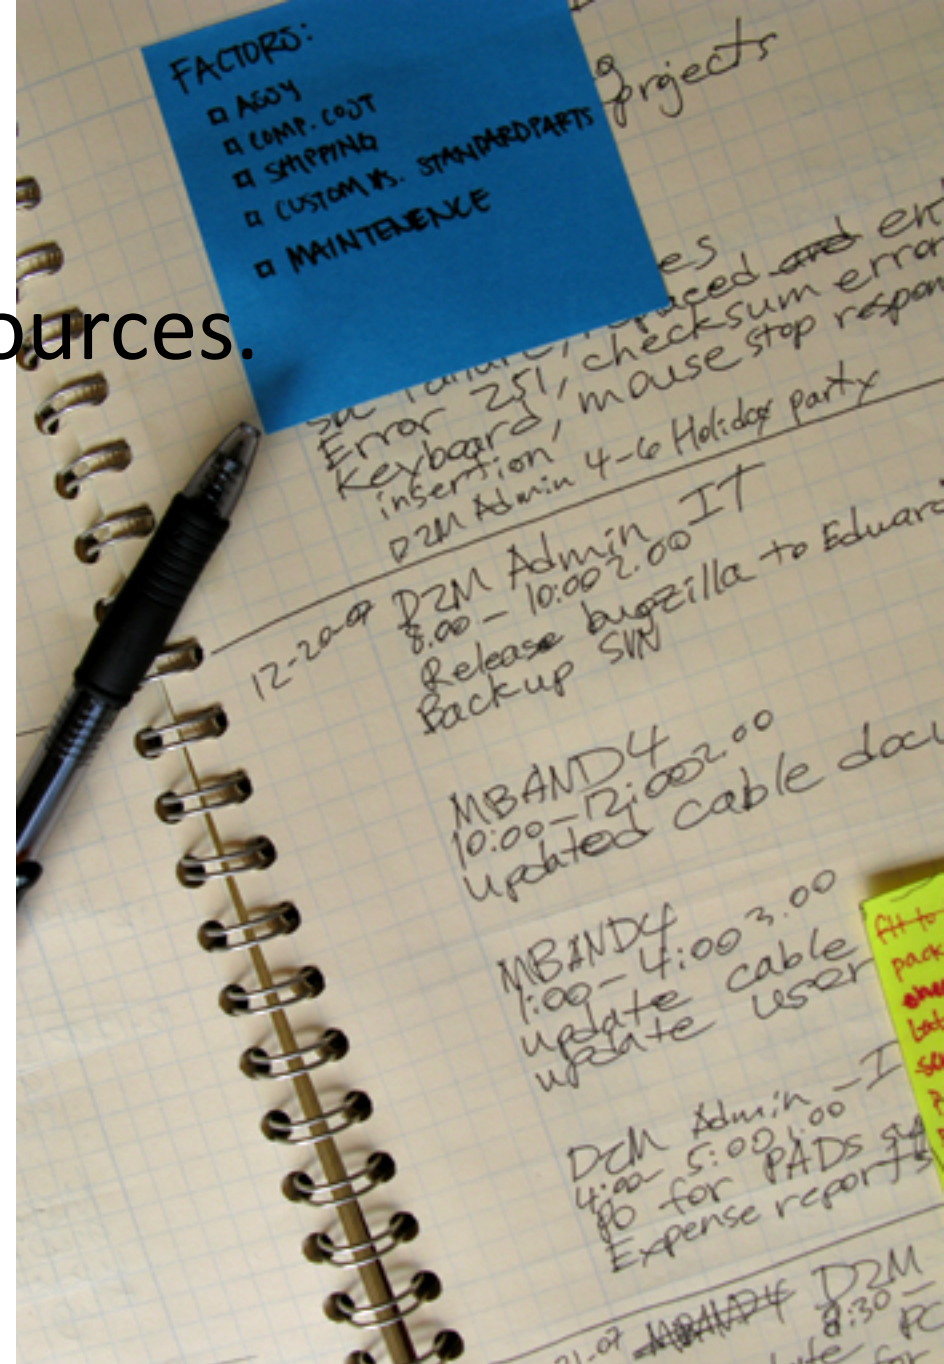 FACTORS:
ASSY
COMP. COST
SHIPPING
CUSTOM VS. STANDARD PARTS
MAINTENENCE
projects
ources.
Error 251, checksum error
Keyboard, mouse stop respon
insertion
D2M Admin 4-6 Holiday party
12-20-07 D2M Admin IT
8:00-10:00 2.00
Release bugzilla to Edward
Backup SVN
MBAND4
10:00-12:00 2.00
updated cable docu
MBAND4
1:00-4:00 3.00
update cable
update user
D2M Admin - I
4:00-5:00 1.00
PO for PADs
Expense reports
pack
MBAND4 D2M
8:30-